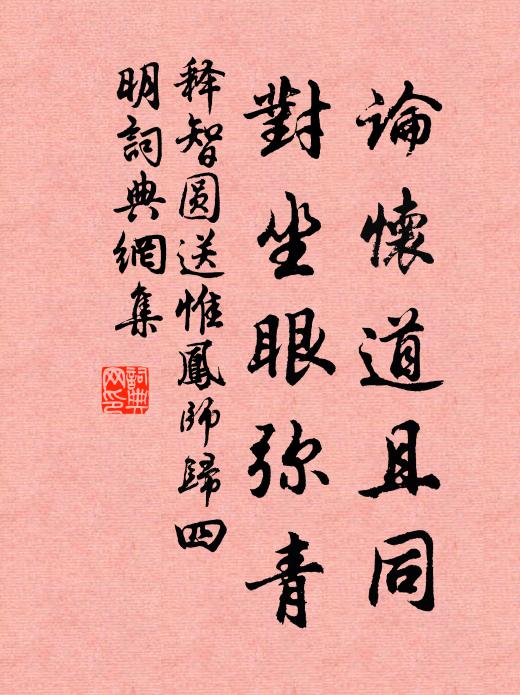 論懷道且同
對坐眼弥青
释智圆送惟鳳師歸四
明詞典網集
詞典
网印